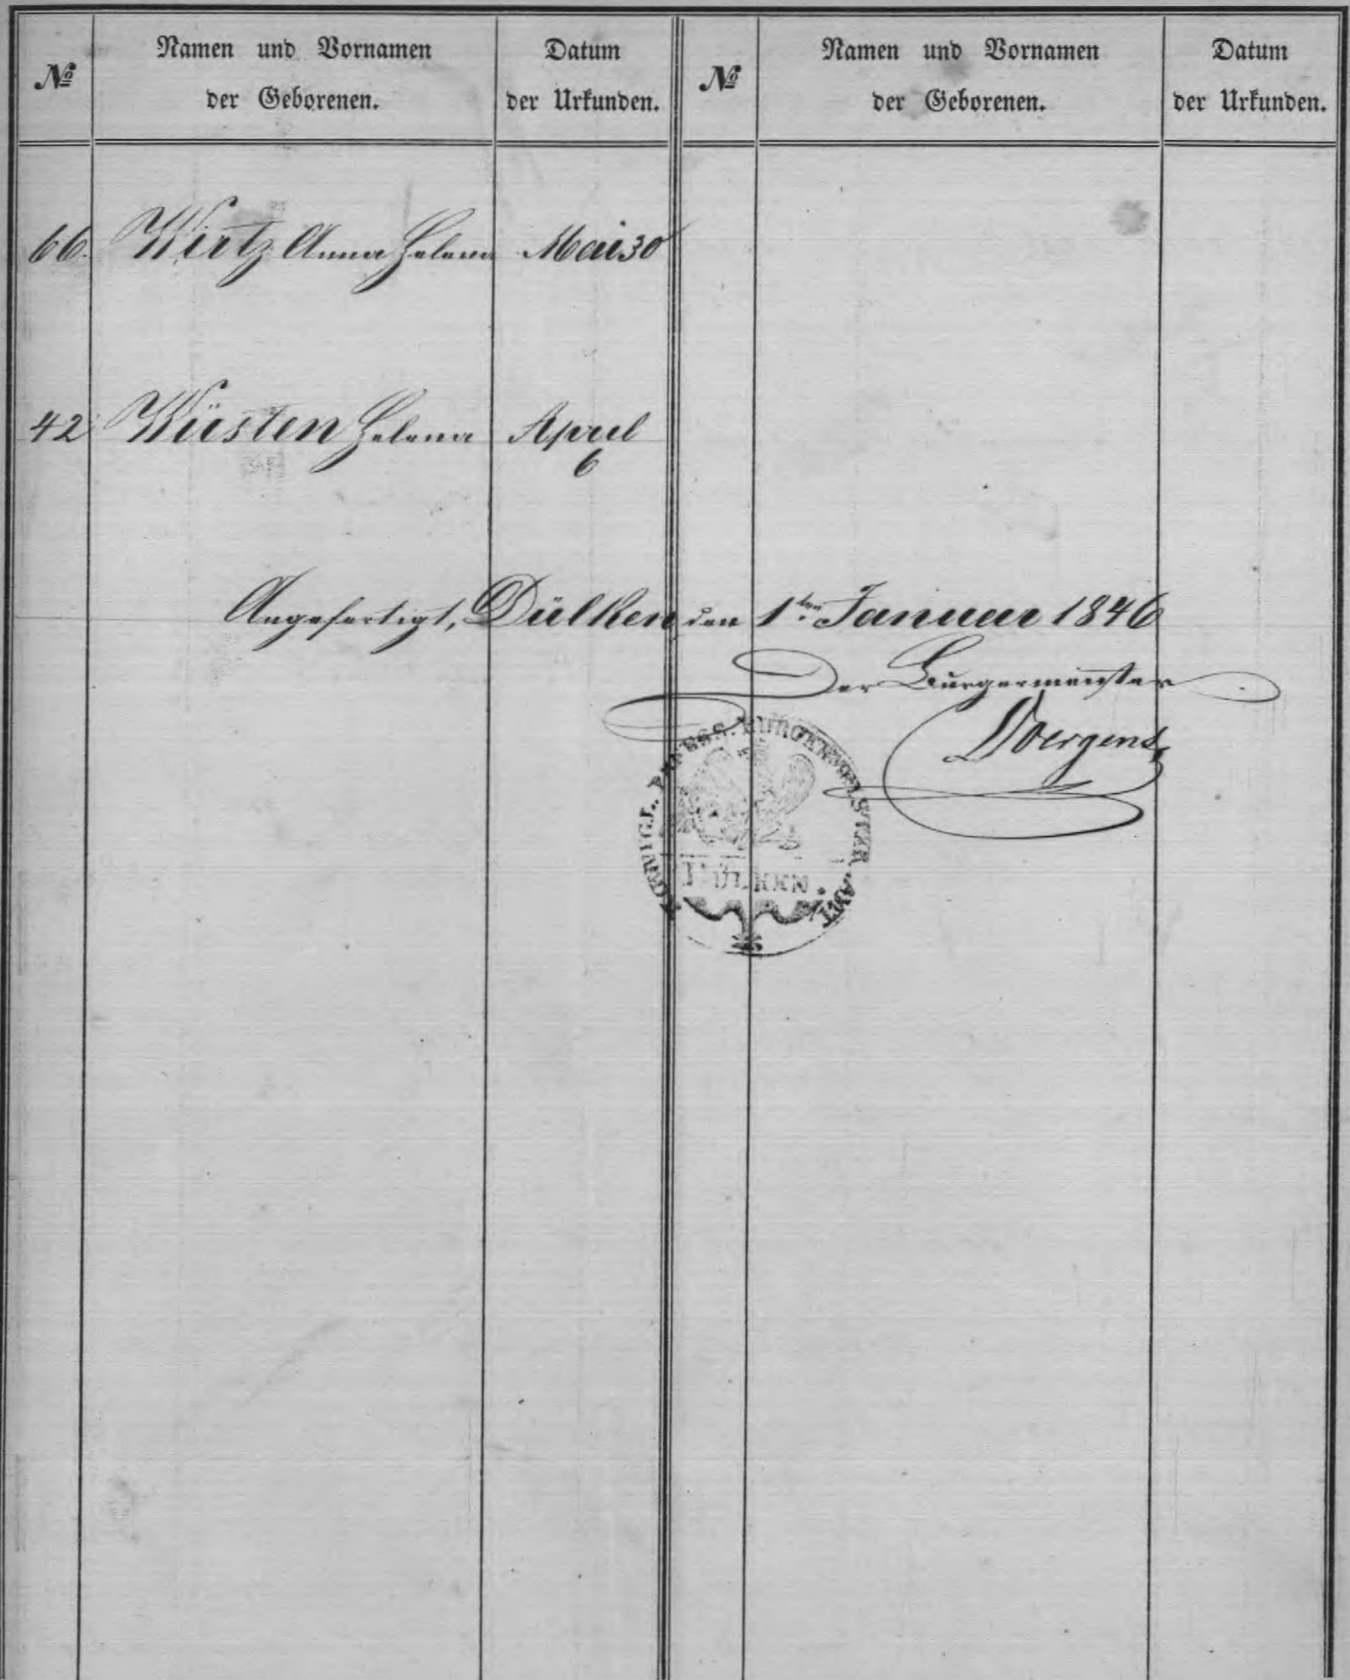 № Namen und Vornamen der Geborenen. Datum der Urkunden. № Namen und Vornamen der Geborenen. Datum der Urkunden.
66. Wirtz Anna Helena Mai 30
42 Wüsten Helena April
6
Angefertigt, Dülken den 1ten Januar 1846
Der Burgermeister
KOENIGL. PREUSS. BURGERMEISTER-AMT
DÜLKEN